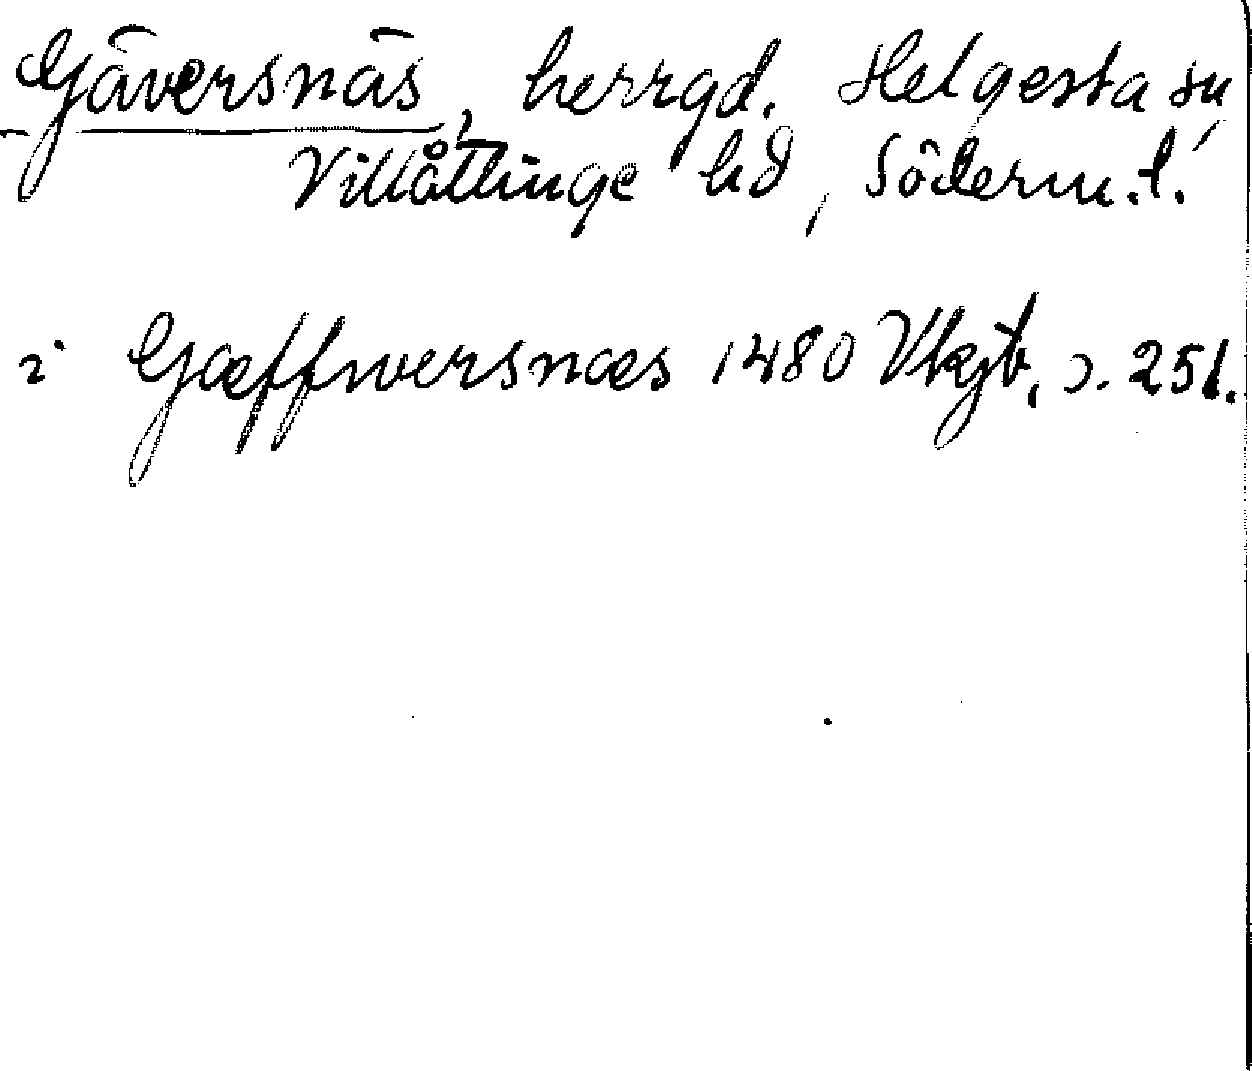 Gäversnäs, herrgd. Helgesta sn,
Villåttinge hd, Söderm.l.
i Gæffwersnæs 1480 Vkjb. s. 251.